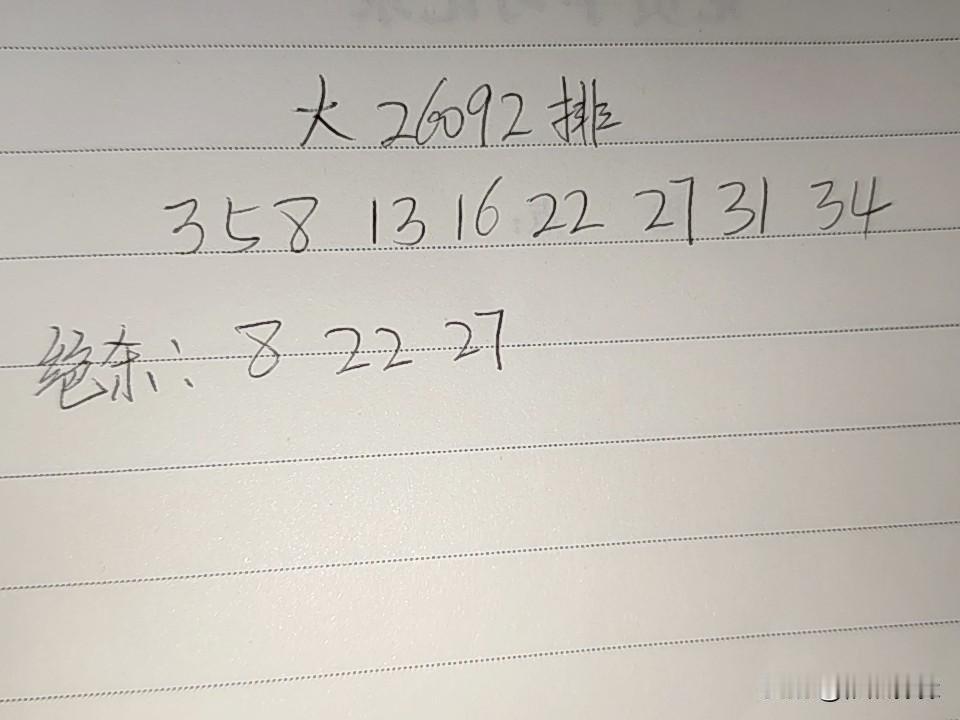 大 26092 排
3 5 8 13 16 22 27 31 34
绝杀: 8 22 27